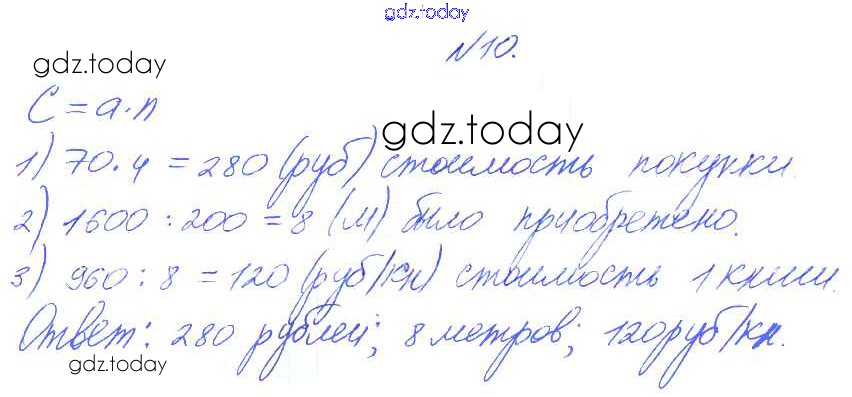 gdz.today
№10.
gdz.today
C = a·n
gdz.today
1) 70·4 = 280 (руб) стоимость покупки.
2) 1600 : 200 = 8 (м) было приобретено.
3) 960 : 8 = 120 (руб/кн) стоимость 1 книги.
Ответ: 280 рублей; 8 метров; 120руб/кн.
gdz.today